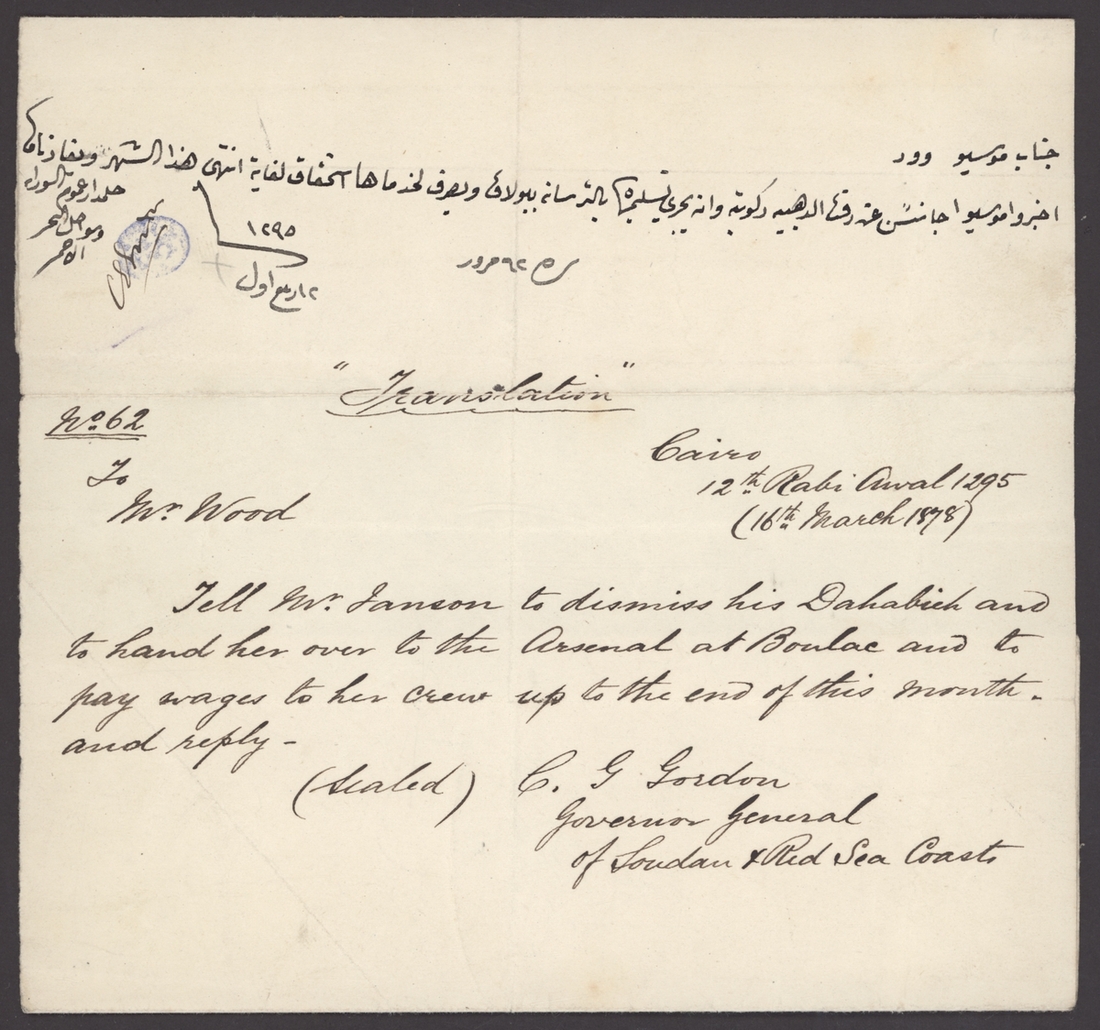 جناب موسيو وود
اخبروا موسيو اجانسن عن رفت الدهبيه ركوبته وانه يجرى تسليمها بالترسانه ببولاق ويصرف لخدماها استحقاق لغاية انتهى هذا الشهر
حكمدار عموم السودان
وسواحل البحر
الاحمر
١٢٩٥
١٢ ربيع اول
٦٢
"Translation"
No. 62
Cairo
12th Rabi Awal 1295
(16th March 1878)
To
Mr. Wood
Tell Mr. Janson to dismiss his Dahabieh and
to hand her over to the Arsenal at Boulac and to
pay wages to her crew up to the end of this month.
and reply -
(Sealed) C. G Gordon
Governor General
of Soudan & Red Sea Coasts